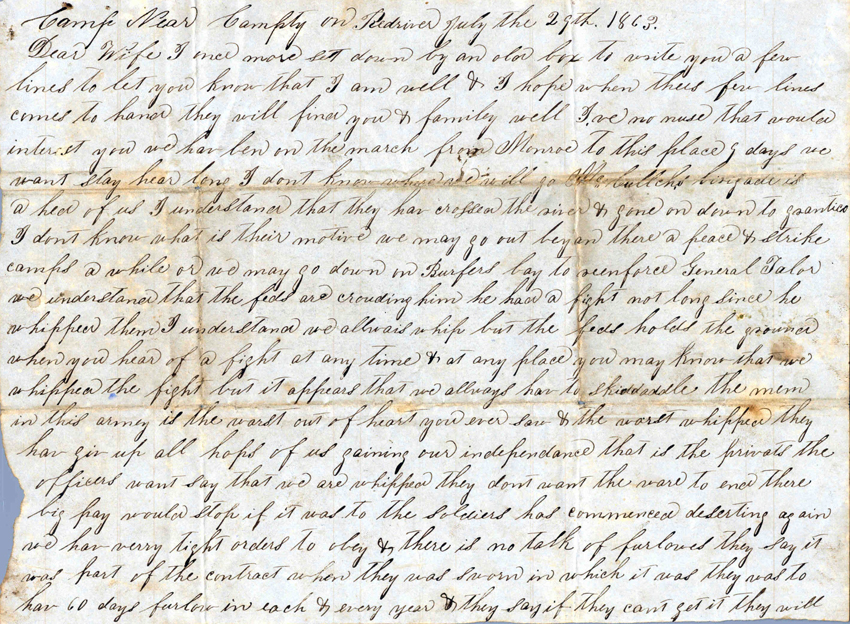 Camp Near Campty on Redriver July the 29th. 1863.
Dear Wife I once more set down by an old box to write you a few
lines to let you know that I am well & I hope when thees few lines
comes to hand they will find you & family well I,ve no nuse that would
interest you we hav ben on the march from Monroe to this place 9 days we
want stay hear long I dont know whare we will go bullchs brigade is
a hed of us I understand that they hav crossed the river & gone on down to
I dont know what is their motive we may go out beyan there a peace & strike
camps a while or we may go down on Burfers bay to reenforce General Talor
we understand that the feds are crouding him he had a fight not long since he
whipped them I understand we allwais whip but the feds holds the ground
when you hear of a fight at any time & at any place you may know that we
whipped the fight but it appears that we allways hav to skidaddle the mem
in this armey is the warst out of heart you ever saw & the worst whipped they
hav giv up all hops of us gaining our independance that is the privats the
officers want say that we are whipped they dont want the ware to end there
big pay would stop if it was to the soldiers has commenced deserting again
we hav verry tight orders to obey & there is no talk of furlowes they say it
was part of the contract when they was sworn in which it was they was to
hav 60 days furlow in each & every year & they say if they cant get it they will